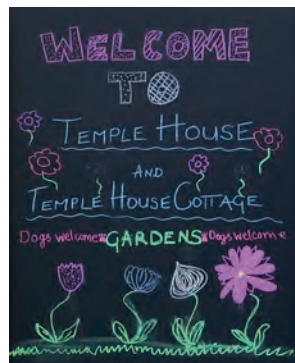 WELCOME
TO
TEMPLE HOUSE
AND
TEMPLE HOUSE COTTAGE
Dogs welcome GARDENS Dogs welcome